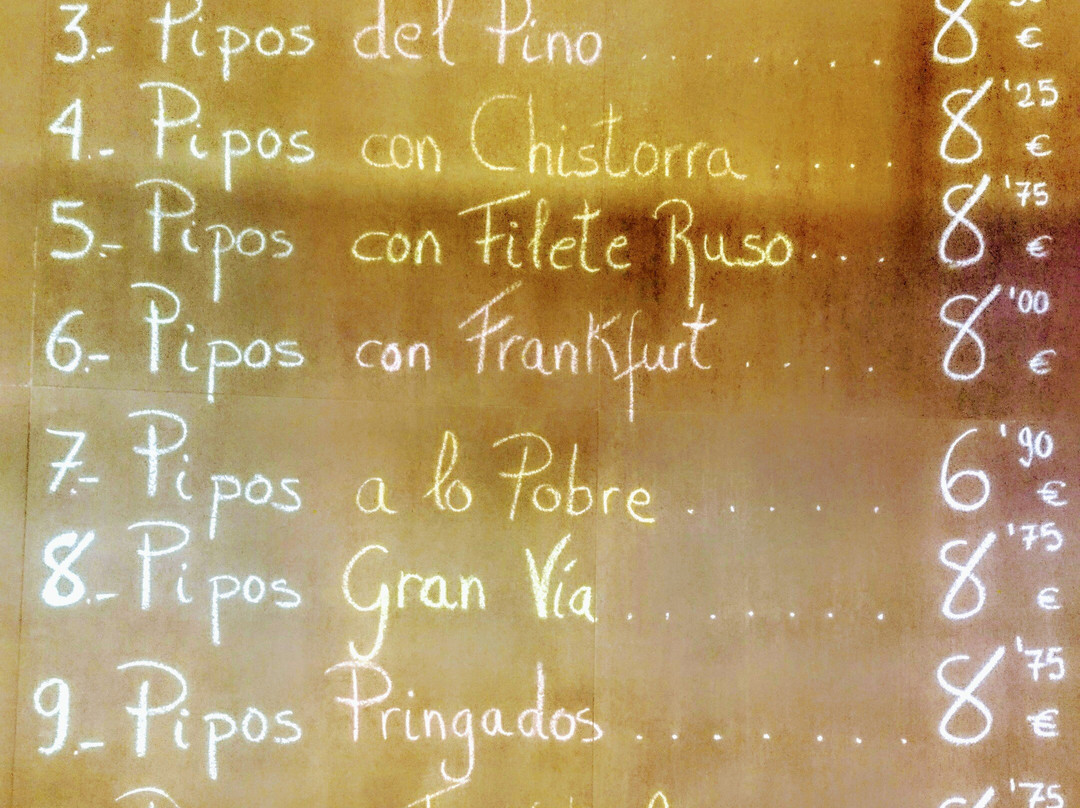 3.- Pipos del Pino ........ 8 €
4.- Pipos con Chistorra ..... 8'25 €
5.- Pipos con Filete Ruso .... 8'75 €
6.- Pipos con Frankfurt .... 8'00 €
7.- Pipos a lo Pobre ...... 6'90 €
8.- Pipos Gran Vía ....... 8'75 €
9.- Pipos Pringados ........ 8'75 €
'75